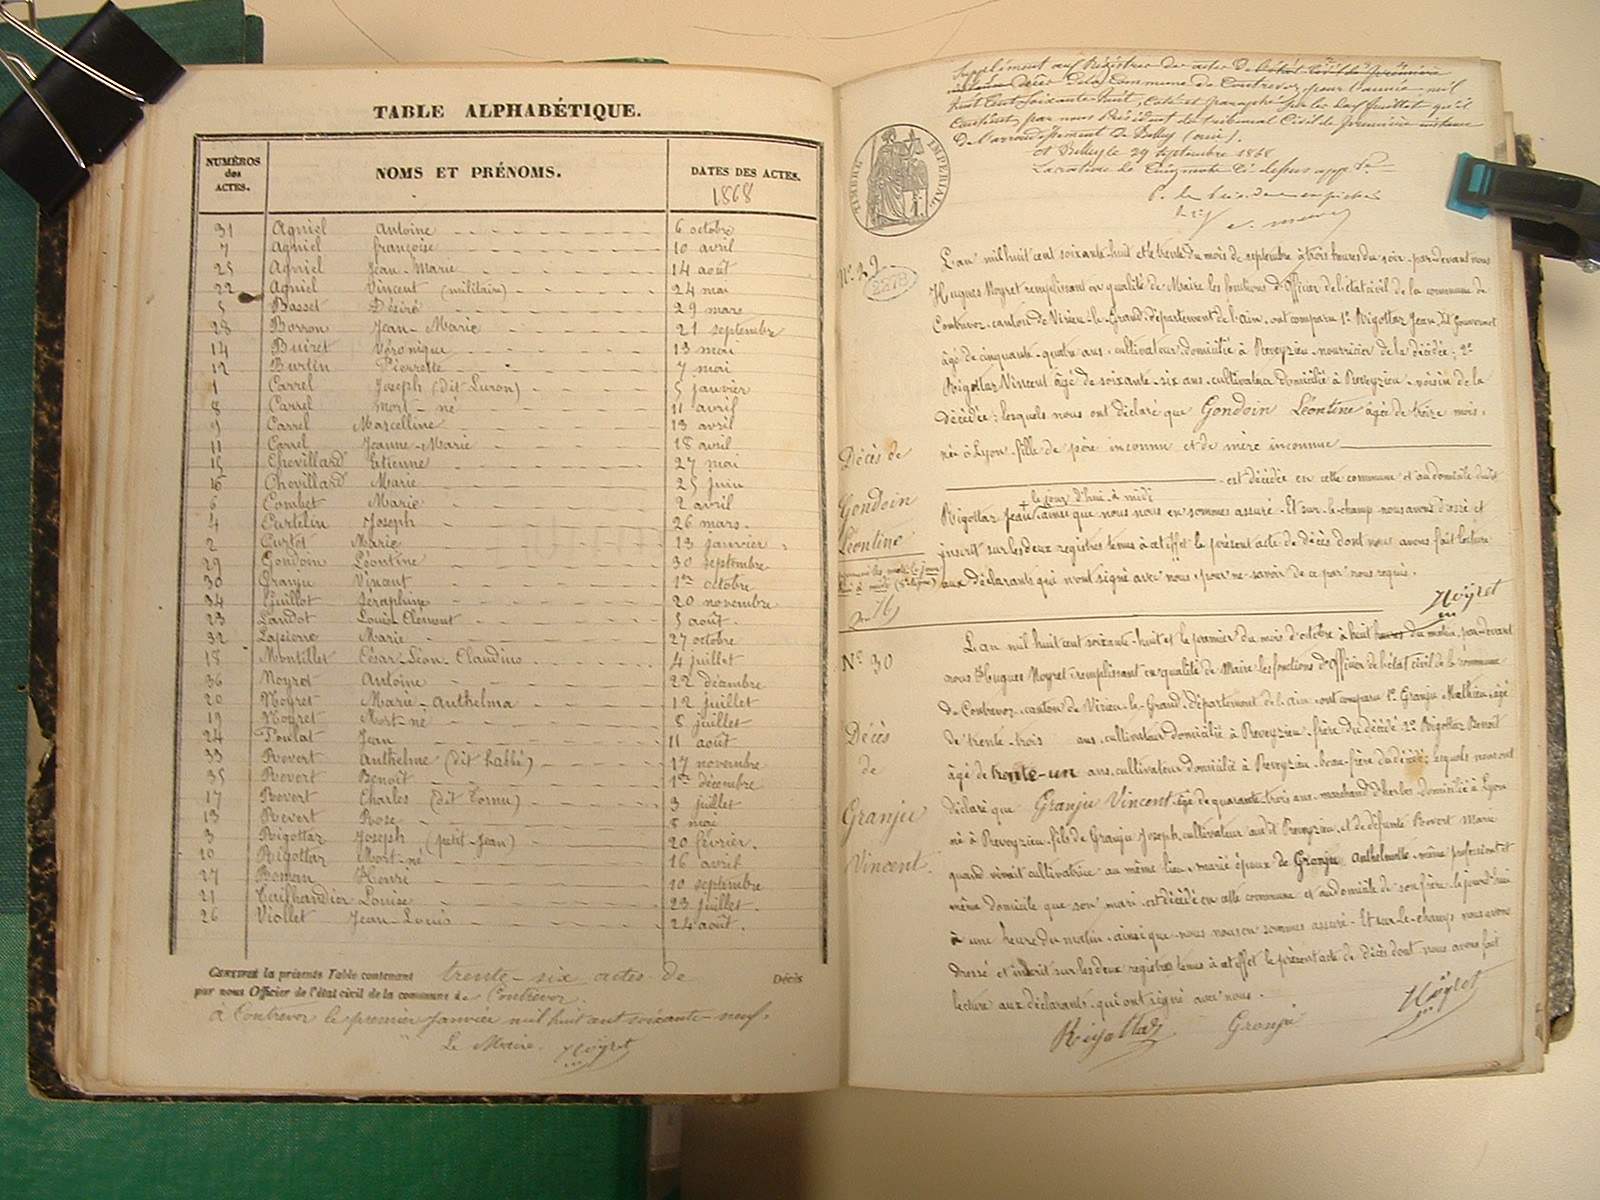 TABLE ALPHABÉTIQUE.
NUMÉROS des ACTES. NOMS ET PRÉNOMS. DATES DES ACTES. 1868
31 Agniel Antoine 6 octobre
7 Agniel françoise 10 avril
25 Agniel Jean-Marie 14 août
22 Agniel Vincent (militaire) 24 mai
5 Basset Désiré 29 mars
28 Borron Jean-Marie 21 septembre
14 Buiret Véronique 13 mai
12 Burtin Pierrette 7 mai
1 Carrel Joseph (dit Luron) 5 janvier
8 Carrel mort-né 11 avril
9 Carrel Marcelline 13 avril
11 Carrel Jeanne-Marie 18 avril
15 Chevillard Etienne 27 mai
16 Chevillard Marie 25 juin
6 Combet Marie 2 avril
4 Curtelin Joseph 26 mars.
2 Curtet Marie 13 janvier
29 Gondoin Léontine 30 septembre
30 Granju Vincent 1er octobre
34 Guillot Séraphine 20 novembre
23 Landot Louis Clément 5 août.
32 Lapierre Marie 27 octobre
18 Montillet César-Léon-Claudius 4 juillet
36 Noyret Antoine 22 décembre
20 Noyret Marie-Anthelma 12 juillet
19 Noyret Mort-né 8 juillet
24 Poulat Jean 11 août
33 Revert Anthelme (dit l'abbé) 17 novembre
35 Revert Benoît 1er décembre
17 Revert Charles (dit Cornu) 3 juillet
13 Revert Rose 8 mai
3 Rigottaz Joseph (petit-Jean) 20 février.
10 Rigottaz Mort-né 16 avril
27 Henri 10 septembre
21 Tailhandier Louise 23 juillet.
26 Viollet Jean-Louis 24 août.
CERTIFIÉ la présente Table contenant trente-six actes de Décès
par nous Officier de l'état civil de la commune de Contrevoz.
à Contrevoz le premier janvier mil huit cent soixante-neuf.
Le Maire. Noyret
Supplément aux Registres des actes de l'état civil de première
instance décès de la commune de Contrevoz pour l'année mil
huit cent soixante huit, coté et paraphé sur les deux feuillets qu'il
contient par nous Président du tribunal Civil de première instance
de l'arrondissement de Belley (ain).
à Belley le 29 septembre 1868
TIMBRE IMPÉRIAL
No. 29
2278
L'an mil huit cent soixante-huit et le trente du mois de septembre à trois heures du soir, par-devant nous
Hugues Noyret remplissant en qualité de Maire les fonctions d'Officier de l'état civil de la commune de
Contrevoz, canton de Virieu-le-Grand, département de l'Ain, ont comparu 1° Rigottaz Jean,
âgé de cinquante-quatre ans, cultivateur domicilié à Preveyzieu, nourricier de la décédée; 2°
Rigottaz Vincent âgé de soixante-six ans, cultivateur domicilié à Preveyzieu, voisin de la
décédée; lesquels nous ont déclaré que Gondoin Léontine âgée de treize mois,
née à Lyon, fille de père inconnu et de mère inconnue
est décédée en cette commune et au domicile dudit
le jour d'hui à midi
Rigottaz Jean, ainsi que nous nous en sommes assuré. Et sur-le-champ nous avons dressé et
inscrit sur les deux registres tenus à cet effet le présent acte de décès dont nous avons fait lecture
aux déclarants qui n'ont signé avec nous, pour ne savoir de ce par nous requis.
Décès de
Gondoin
Léontine
Noyret
No 30
L'an mil huit cent soixante-huit et le premier du mois d'octobre à huit heures du matin, par-devant
nous Hugues Noyret remplissant en qualité de Maire les fonctions d'Officier de l'état civil de la commune
de Contrevoz, canton de Virieu-le-Grand, département de l'ain, ont comparu 1° Granju Mathieu, âgé
de trente-trois ans, cultivateur domicilié à Preveyzieu, frère du décédé 2° Rigottaz Benoît
âgé de trente-un ans, cultivateur domicilié à Preveyzieu, beau-frère du décédé; lesquels nous ont
déclaré que Granju Vincent âgé de quarante-trois ans, marchand d'herbes, domicilié à Lyon
né à Preveyzieu, fils de Granju Joseph, cultivateur audit Preveyzieu, et de défunte Revert Marie
quand vivait cultivatrice au même lieu, marié époux de Granju Anthelmette, même profession et
même domicile que son mari, est décédé en cette commune et au domicile de son frère, le jourd'hui
à une heure du matin, ainsi que nous nous en sommes assuré. Et sur-le-champ nous avons
dressé et inscrit sur les deux registres tenus à cet effet le présent acte de décès dont nous avons fait
lecture aux déclarants, qui ont signé avec nous.
Décès
de
Granju
Vincent.
Rigottaz Granju Noyret